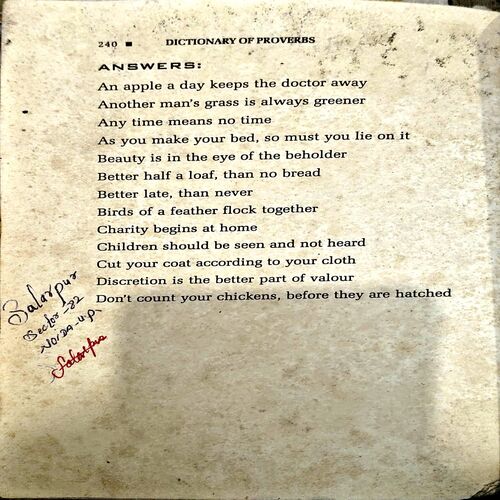 240 ■ DICTIONARY OF PROVERBS
ANSWERS:
An apple a day keeps the doctor away
Another man's grass is always greener
Any time means no time
As you make your bed, so must you lie on it
Beauty is in the eye of the beholder
Better half a loaf, than no bread
Better late, than never
Birds of a feather flock together
Charity begins at home
Children should be seen and not heard
Cut your coat according to your cloth
Discretion is the better part of valour
Don't count your chickens, before they are hatched
Salarpur
Sector-82
Noida-u.p